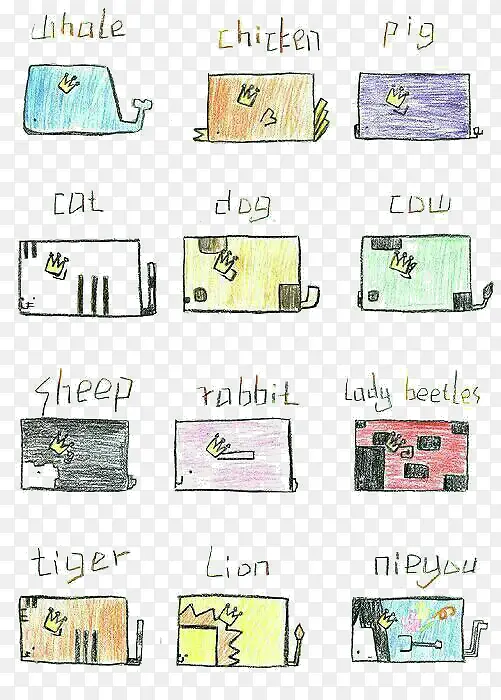 whale chicken pig
cat dog cow
sheep rabbit Lady beetles
tiger Lion nieyou